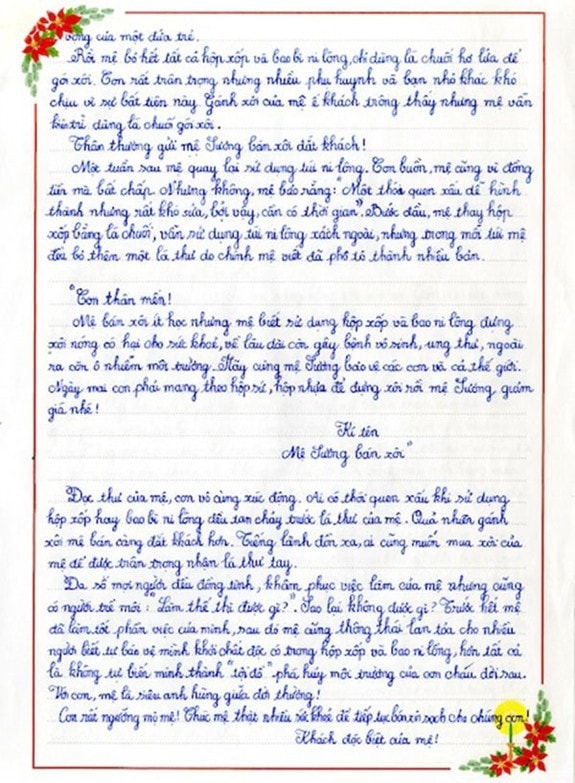 vọng của một đứa trẻ.
Rồi mệ bỏ hết tất cả hộp xốp và bao bì ni lông, chỉ dùng lá chuối hơ lửa để
gói xôi. Con rất trân trọng nhưng nhiều phụ huynh và bạn nhỏ khác khó
chịu về sự bất tiện này. Gánh xôi của mệ ế khách trông thấy nhưng mệ vẫn
kiên trì dùng lá chuối gói xôi.
Thân thương gửi mệ Sương bán xôi đắt khách!
Một tuần sau mệ quay lại sử dụng túi ni lông. Con buồn, mệ cũng vì đồng
tiền mà bất chấp. Nhưng không, mệ bảo rằng: Một thói quen xấu dễ hình
thành nhưng rất khó sửa, bởi vậy, cần có thời gian". Bước đầu, mệ thay hộp
xốp bằng lá chuối, vẫn sử dụng túi ni lông xách ngoài, nhưng trong mỗi túi mệ
đều bỏ thêm một lá thư do chính mệ viết đã phô tô thành nhiều bản.
"Con thân mến!
Mệ bán xôi ít học nhưng mệ biết sử dụng hộp xốp và bao ni lông đựng
xôi nóng có hại cho sức khoẻ, về lâu dài còn gây bệnh vô sinh, ung thư, ngoài
ra còn ô nhiễm môi trường. Hãy cùng mệ Sương bảo vệ các con và cả thế giới.
Ngày mai con phải mang theo hộp sứ, hộp nhựa để đựng xôi rồi mệ Sương giảm
giá nhé!
Kí tên
Mệ Sương bán xôi"
Đọc thư của mệ, con vô cùng xúc động. Ai có thói quen xấu khi sử dụng
hộp xốp hay bao bì ni lông đều tan chảy trước lá thư của mệ. Quả nhiên gánh
xôi mệ bán càng đắt khách hơn. Tiếng lành đồn xa, ai cũng muốn mua xôi của
mệ để được trân trọng nhận lá thư tay.
Đa số mọi người đều đồng tình, khâm phục việc làm của mệ nhưng cũng
có người trề môi: "Làm thế thì được gì?". Sao lại không được gì? Trước hết mệ
đã làm tốt phần việc của mình, sau đó mệ cũng thông thái lan tỏa cho nhiều
người biết tự bảo vệ mình khỏi chất độc có trong hộp xốp và bao ni lông, hơn tất cả
là không tự biến mình thành "tội đồ" phá hủy môi trường của con cháu đời sau.
Với con, mệ là siêu anh hùng giữa đời thường!
Con rất ngưỡng mộ mệ! Chúc mệ thật nhiều sức khoẻ để tiếp tục bán xôi sạch cho chúng con!
Khách đặc biệt của mệ!